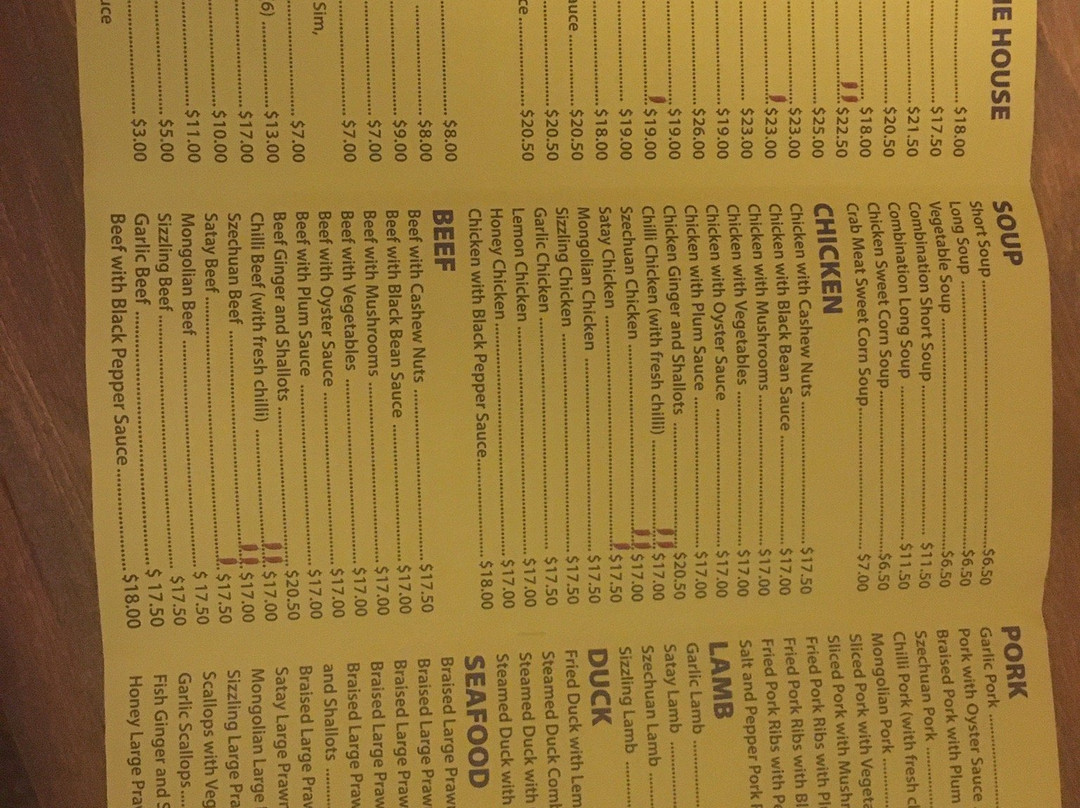 HOUSE
$18.00
$17.50
$21.50
$20.50
$18.00
$22.50
$25.00
$23.00
$23.00
$23.00
$19.00
$26.00
$19.00
$19.00
$19.00
$18.00
auce ........ $20.50
$20.50
ce ........ $20.50
$8.00
$8.00
$9.00
$7.00
$7.00
Sim,
$7.00
6) ........ $13.00
$17.00
$10.00
$11.00
$5.00
$3.00
uce
SOUP
Short Soup ........ $6.50
Long Soup ........ $6.50
Vegetable Soup ........ $6.50
Combination Short Soup ........ $11.50
Combination Long Soup ........ $11.50
Chicken Sweet Corn Soup ........ $6.50
Crab Meat Sweet Corn Soup ........ $7.00
CHICKEN
Chicken with Cashew Nuts ........ $17.50
Chicken with Black Bean Sauce ........ $17.00
Chicken with Mushrooms ........ $17.00
Chicken with Vegetables ........ $17.00
Chicken with Oyster Sauce ........ $17.00
Chicken with Plum Sauce ........ $17.00
Chicken Ginger and Shallots ........ $20.50
Chilli Chicken (with fresh chilli) ........ $17.00
Szechuan Chicken ........ $17.00
Satay Chicken ........ $17.50
Mongolian Chicken ........ $17.50
Sizzling Chicken ........ $17.50
Garlic Chicken ........ $17.50
Lemon Chicken ........ $17.00
Honey Chicken ........ $17.00
Chicken with Black Pepper Sauce ........ $18.00
BEEF
Beef with Cashew Nuts ........ $17.50
Beef with Black Bean Sauce ........ $17.00
Beef with Mushrooms ........ $17.00
Beef with Vegetables ........ $17.00
Beef with Oyster Sauce ........ $17.00
Beef with Plum Sauce ........ $17.00
Beef Ginger and Shallots ........ $20.50
Chilli Beef (with fresh chilli) ........ $17.00
Szechuan Beef ........ $17.00
Satay Beef ........ $17.50
Mongolian Beef ........ $17.50
Sizzling Beef ........ $17.50
Garlic Beef ........ $17.50
Beef with Black Pepper Sauce ........ $18.00
PORK
Garlic Pork ........
Pork with Oyster Sauce
Braised Pork with Plum
Szechuan Pork ........
Chilli Pork (with fresh c
Mongolian Pork ........
Sliced Pork with Vegeta
Sliced Pork with Mushr
Fried Pork Ribs with Pl
Fried Pork Ribs with Bl
Fried Pork Ribs with Pe
Salt and Pepper Pork
LAMB
Garlic Lamb ........
Satay Lamb ........
Szechuan Lamb ........
Sizzling Lamb ........
DUCK
Fried Duck with Lem
Steamed Duck Com
Steamed Duck with
Steamed Duck with
SEAFOOD
Braised Large Prawn
Braised Large Praw
Braised Large Praw
Braised Large Praw
Braised Large Praw
and Shallots ........
Braised Large Praw
Satay Large Prawn
Mongolian Large
Sizzling Large Pra
Scallops with Veg
Garlic Scallops ....
Fish Ginger and S
Honey Large Pra